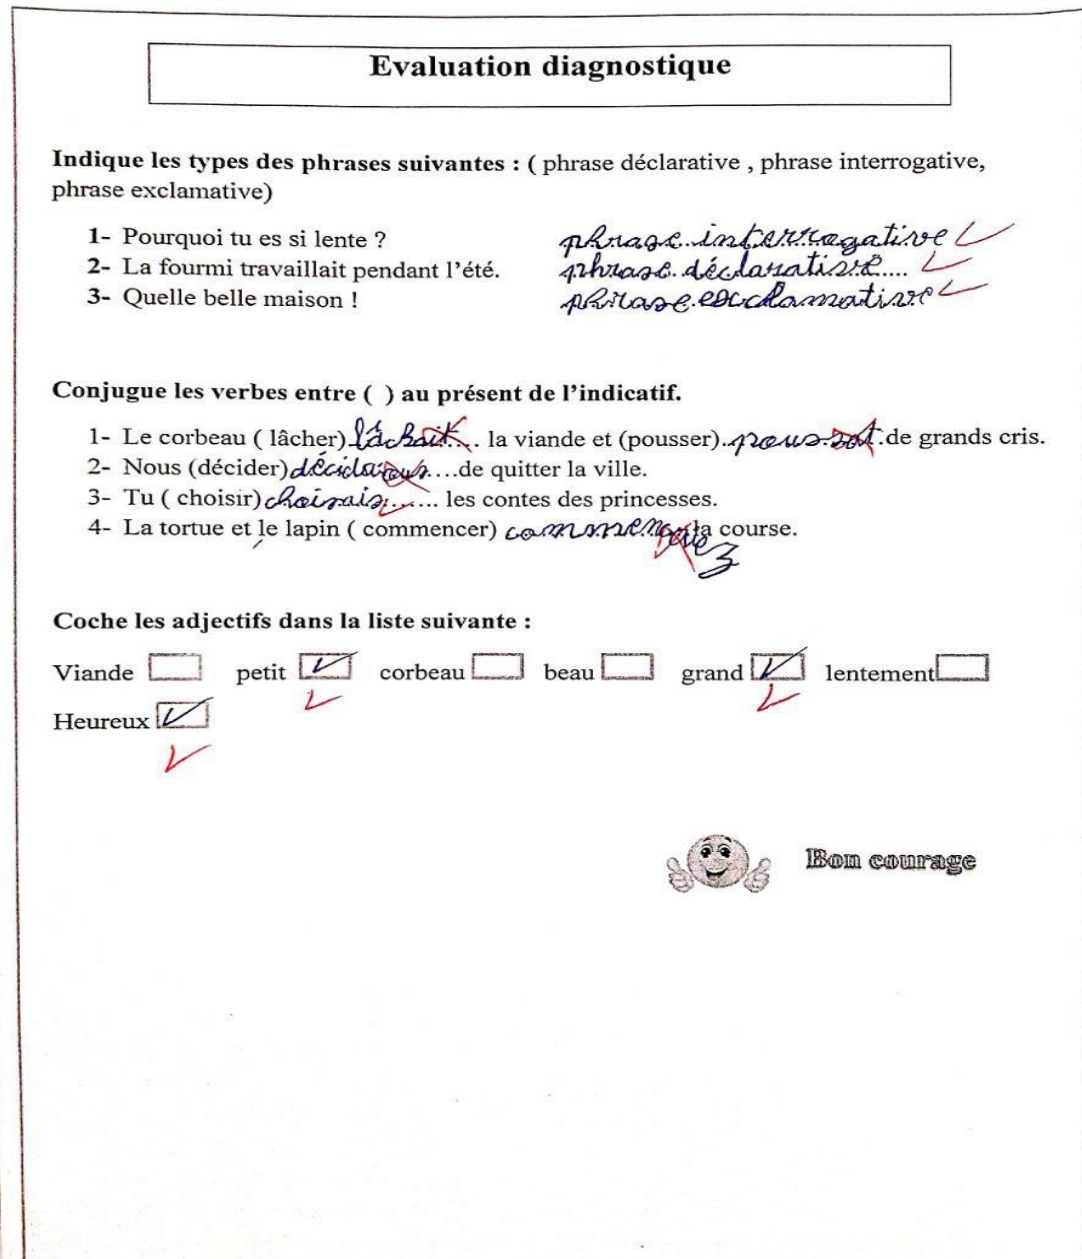 Evaluation diagnostique
Indique les types des phrases suivantes : ( phrase déclarative , phrase interrogative,
phrase exclamative)
1- Pourquoi tu es si lente ? phrase interrogative
2- La fourmi travaillait pendant l'été. phrase déclarative....
3- Quelle belle maison ! phrase exclamative
Conjugue les verbes entre ( ) au présent de l'indicatif.
1- Le corbeau ( lâcher) lâchait... la viande et (pousser)..poussat.de grands cris.
2- Nous (décider) décidaous....de quitter la ville.
3- Tu ( choisir) choisais...... les contes des princesses.
4- La tortue et le lapin ( commencer) la course.
Coche les adjectifs dans la liste suivante :
Viande petit corbeau beau grand lentement
Heureux
Bon courage